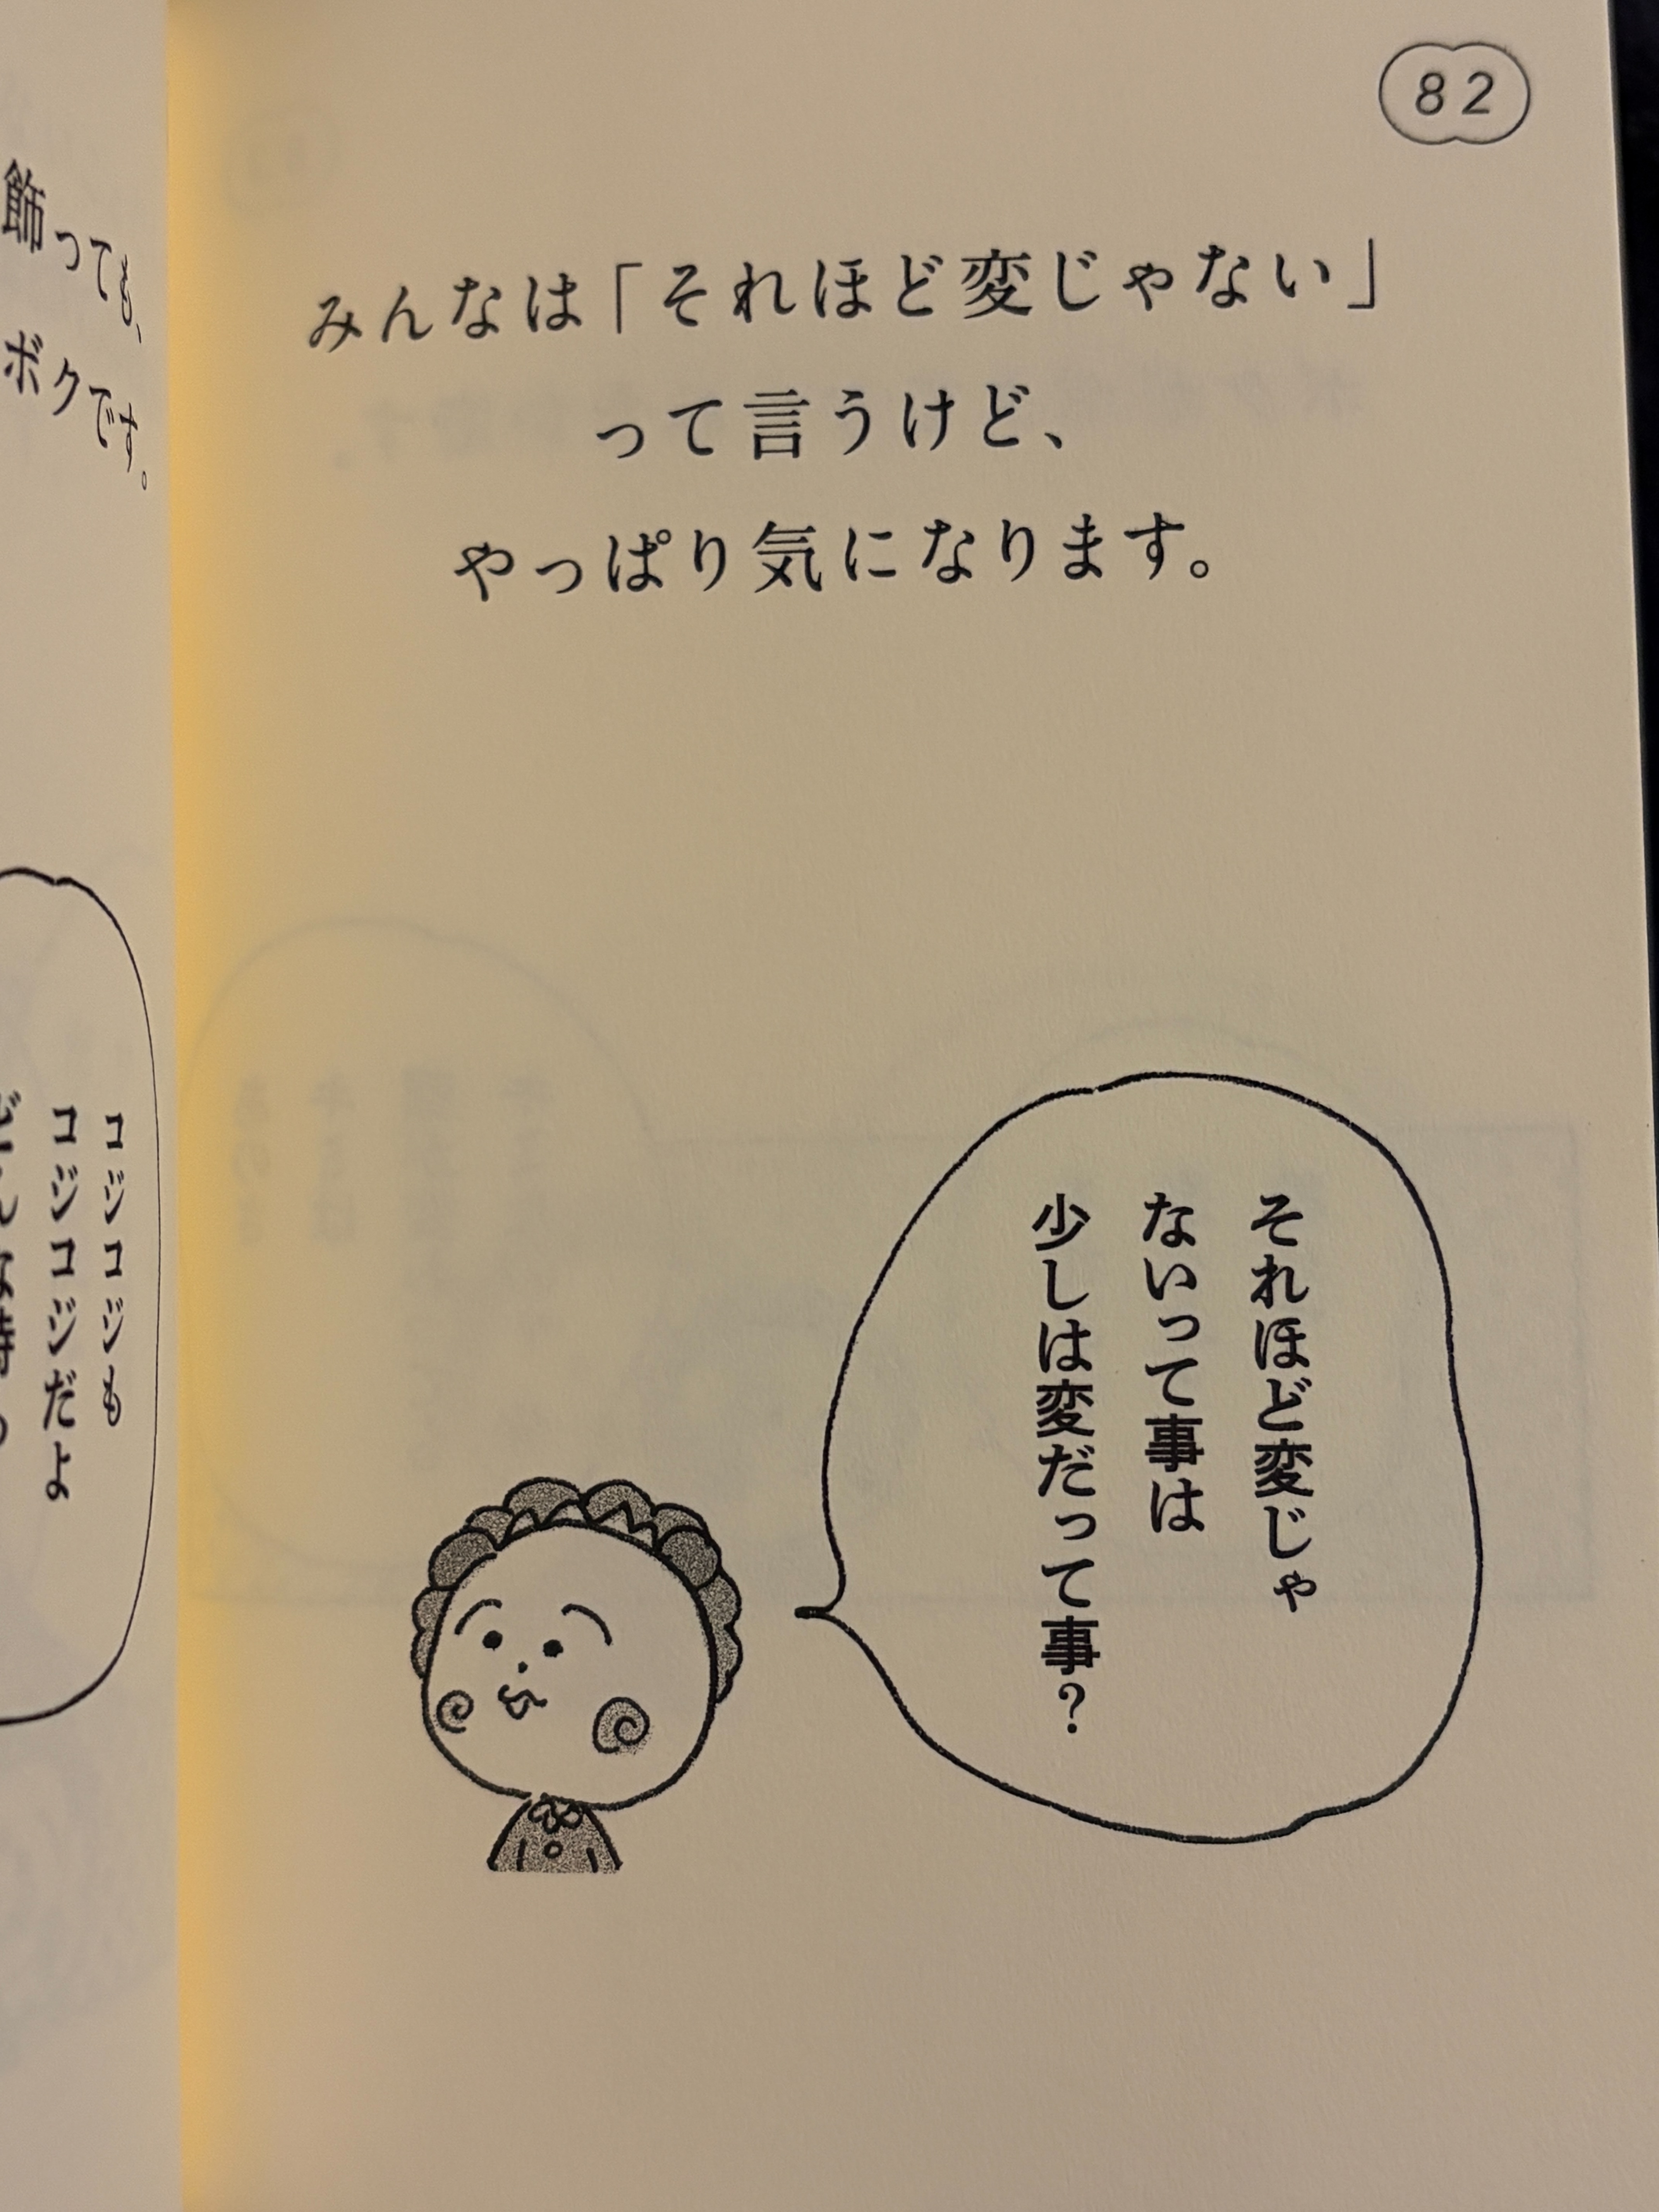 82
みんなは「それほど変じゃない」
って言うけど、
やっぱり気になります。
それほど変じゃ
ないって事は
少しは変だって事?
飾っても、
ボクです。
コジコジも
コジコジだよ